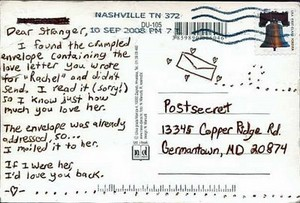 NASHVILLE TN 372
10 SEP 2008 PM 7
DU-105
Dear Stranger,
I found the crumpled
envelope containing the
love letter you wrote
for "Rachel" and didn't
send. I read it (sorry!)
so I know just how
much you love her.
The envelope was already
addressed, so...
I mailed it to her.
If I were her,
I'd love you back.
Postsecret
13345 Copper Ridge Rd.
Germantown, MD 20874